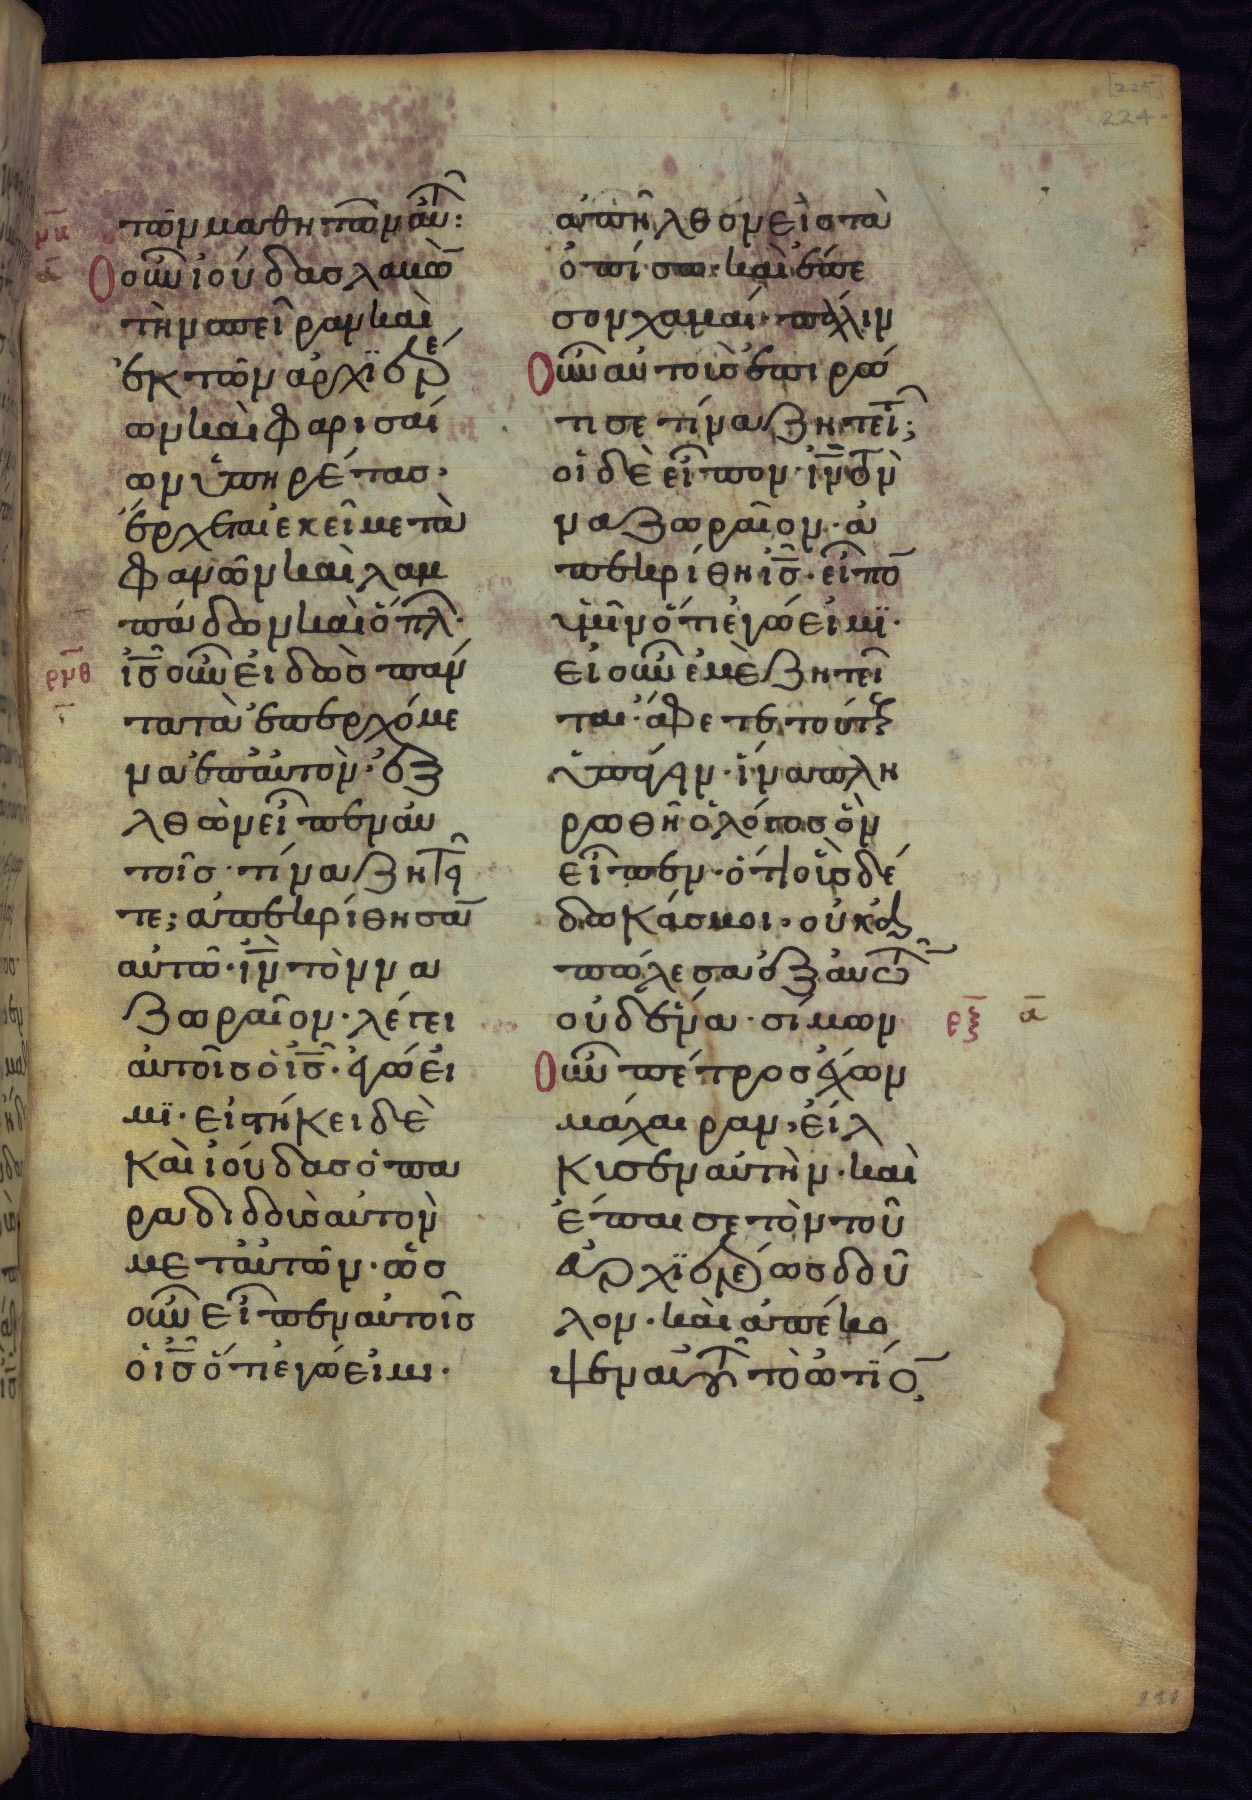 [225]
224
τῶν μαθητῶν αὐτ̑:
ρμη
Ὁ οὖν ἰούδας λαβὼ̄
α
τὴν σπεῖραν καὶ
ἐκ τῶν ἀρχϊερέ
ων καὶ φαρισαί
ων ὑπηρέτας·
ἔρχεται ἐκεῖ μετὰ
φανῶν καὶ λαμ
πάδων καὶ ὅπλ·
ρμθ
ἰ̅ς̅ οὖν εἰδὼς πάν
τα τὰ ἐπερχόμε
να ἐπ αὐτὸν· ἐξ
ελθὼν εἶπεν αὐ
τοῖς· τίνα ζητεῖ
τε; ἀπεκρίθησα̅
αὐτῶ· ἰ̅ν̅ τὸν να
ζωραῖον· λέγει
αὐτοῖς ὁ ἰ̅ς̅· ἐγώ εἰ
μϊ· εἱστήκει δὲ
καὶ ἰούδας ὁ πα
ραδιδοὺς αὐτὸν
μετ αὐτῶν· ὡς
οὖν εἶπεν αὐτοῖς
ὁ ἰ̅ς̅ ὅτι ἐγώ εἰμι·
ἀπῆλθον εἰς τὰ
ὀπίσω· καὶ ἔπε
σον χαμαί· πάλιν
Οὖν αὐτοὺς ἐπηρώ
τισε τίνα ζητεῖτ̅;
οἱ δὲ εἶπον· ἰ̅ν̅ τὸν
ναζωραῖον· ἀ
πεκρίθη ἰ̅ς̅· εἶπο̅
ὑμῖν ὅτι ἐγώ εἰμϊ·
εἰ οὖν ἐμὲ ζητεῖ
ται· ἄφετε τούτους
ὑπάγειν· ἵνα πλη
ρωθῆ ὁ λόγος ὃν
εἶπεν· ὅτι οὓς δέ
δωκάς μοι· οὐκ ἀ
πώλεσα ἐξ αὐτῶ̅
οὐδένα· σίμων
ρξ
α̅
Οὖν πέτρος ἔχων
μάχαιραν, εἵλ
κισεν αὐτὴν· καὶ
ἔπαισε τὸν τοῦ
ἀρχϊερέως δοῦ
λον· καὶ ἀπέκο
ψεν αὐτοῦ τὸ ὠτίο̅,